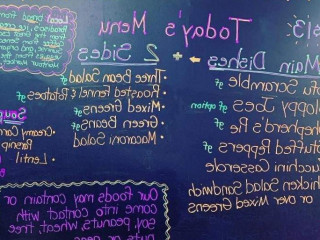 Today's Menu
Main Dishes + 2 Sides
ofu Scramble gf
loppy Joes gf option
hepherd's Pie gf
tuffed Peppers gf
ucchini Casserole
hicken Salad Sandwich
or over Mixed Greens
• Three Bean Salad gf
• Roasted Fennel & Potatoes gf
• Mixed Greens gf
• Green Beans gf
• Macaroni Salad
Local
Soup
• Creamy Carr
Parsnip
• Lentil
Our foods may contain or
come into contact with
soy, peanuts, wheat, tree
nuts or